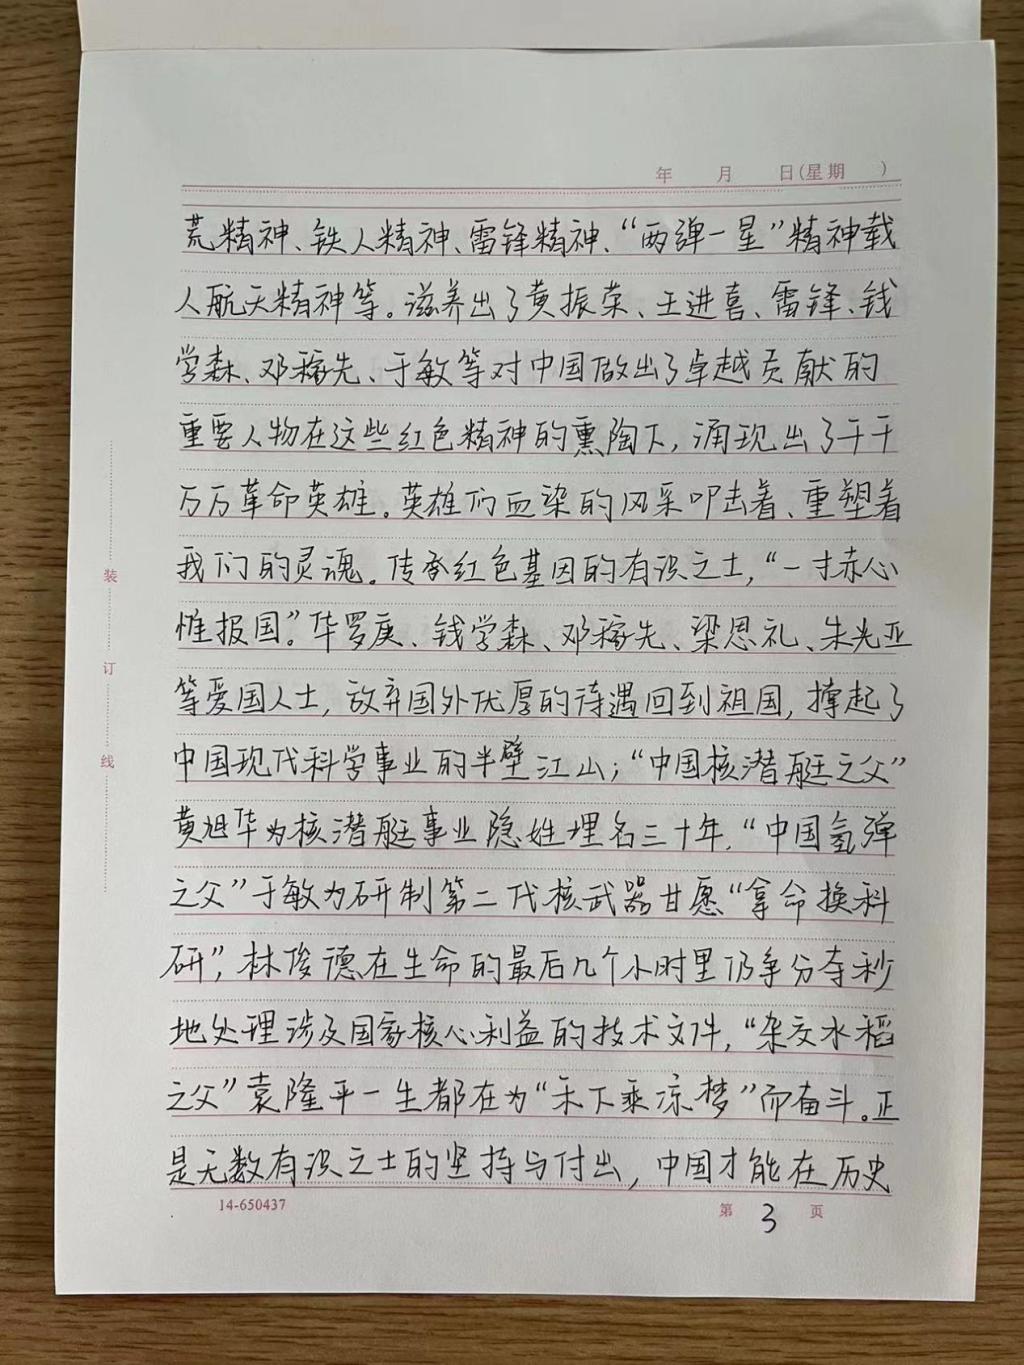 年 月 日(星期 )
荒精神、铁人精神、雷锋精神、“两弹一星”精神载
人航天精神等。滋养出了黄振荣、王进喜、雷锋、钱
学森、邓稼先、于敏等对中国做出了卓越贡献的
重要人物在这些红色精神的熏陶下,涌现出了千千
万万革命英雄。英雄们血染的风采叩击着、重塑着
我们的灵魂。传承红色基因的有识之士,“一寸赤心
惟报国”。华罗庚、钱学森、邓稼先、梁思礼、朱光亚
等爱国人士,放弃国外优厚的待遇回到祖国,撑起了
中国现代科学事业的半壁江山;“中国核潜艇之父”
黄旭华为核潜艇事业隐姓埋名三十年,“中国氢弹
之父”于敏为研制第二代核武器甘愿“拿命换科
研”,林俊德在生命的最后几个小时里仍争分夺秒
地处理涉及国家核心利益的技术文件,“杂交水稻
之父”袁隆平一生都在为“禾下乘凉梦”而奋斗。正
是无数有识之士的坚持与付出,中国才能在历史
装
订
线
14-650437
第 3 页